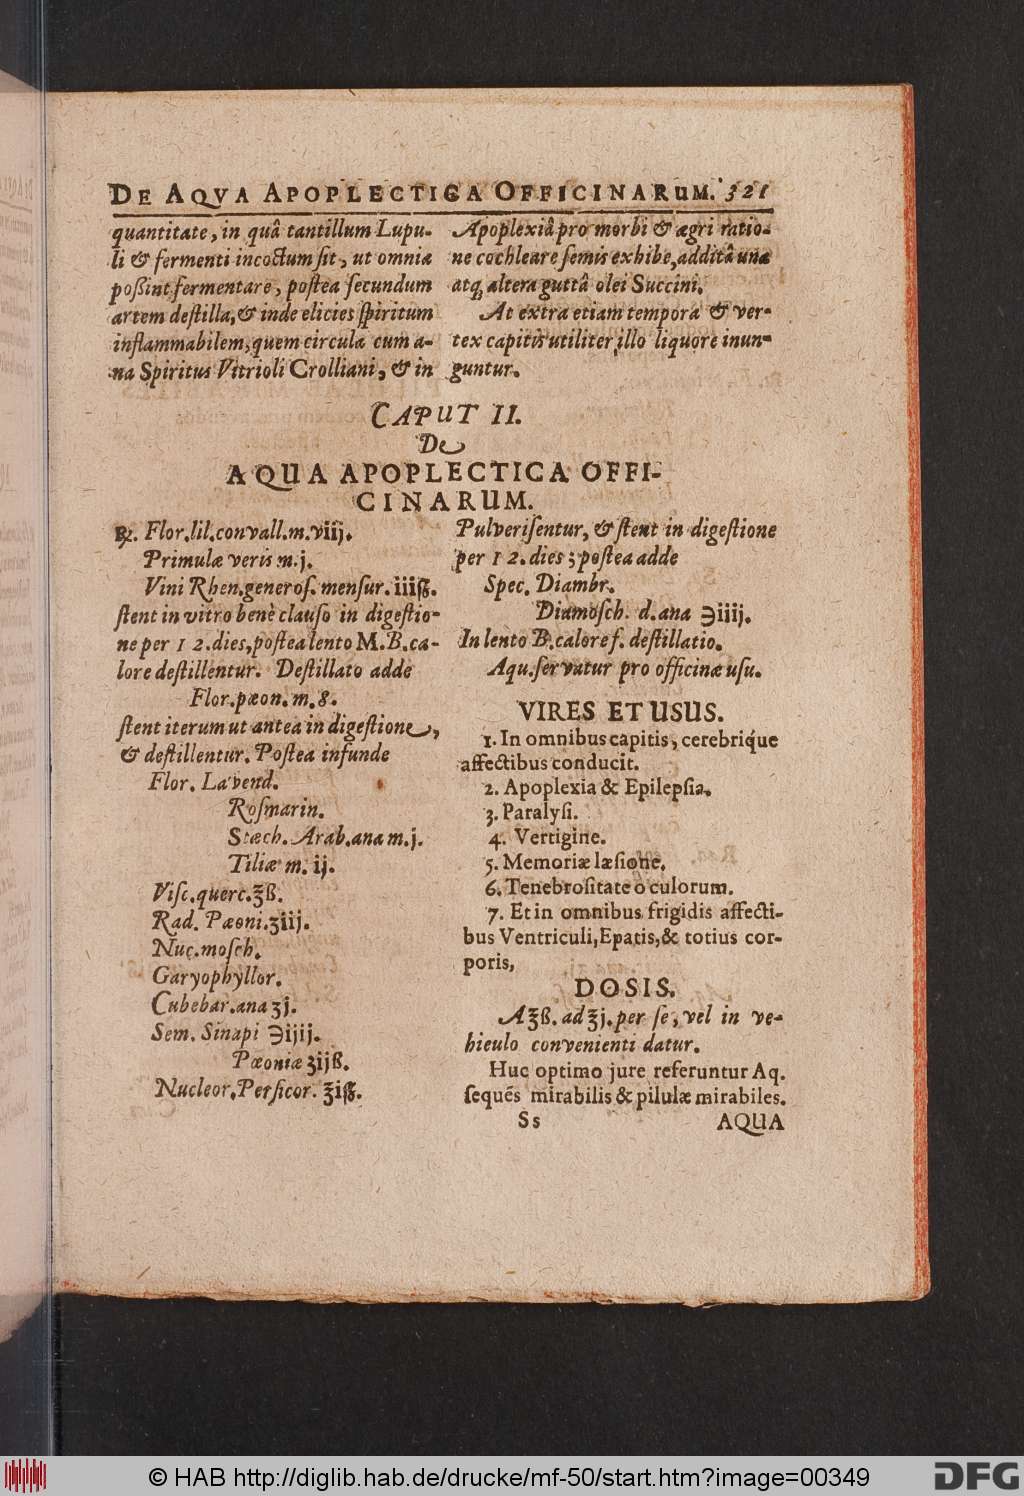 DE AQVA APOPLECTICA OFFICINARUM. 321
quantitate, in quâ tantillum Lupu-
li & fermenti incoctum sit, ut omnia
poßint fermentare, postea secundum
artem destilla, & inde elicies spiritum
inflammabilem, quem circula cum a-
na Spiritus Vitrioli Crolliani, & in
Apoplexiâ pro morbi & ægri ratio-
ne cochleare semis exhibe, additâ una
atq; altera guttâ olei Succini.
At extra etiam tempora & ver-
tex capitis utiliter illo liquore inun-
guntur.
CAPUT II.
De
AQUA APOPLECTICA OFFI-
CINARUM.
℞. Flor. lil. convall. m. viij.
Primulæ veris m. j.
Vini Rhen. generos. mensur. iiiß.
stent in vitro benè clauso in digestio-
ne per 12. dies, postea lento M. B. ca-
lore destillentur. Destillato adde
Flor. pæon. m. 8.
stent iterum ut antea in digestione,
& destillentur. Postea infunde
Flor. Lavend.
Rosmarin.
Stæch. Arab. ana m. j.
Tiliæ m. ij.
Visc. querc. ℥ß.
Rad. Pæoni. ʒiij.
Nuc. mosch.
Garyophyllor.
Cubebar. ana ʒj.
Sem. Sinapi ℈ijij.
Pæoniæ ʒijß.
Nucleor. Persicor. ℥iß.
Pulverisentur, & stent in digestione
per 12. dies; postea adde
Spec. Diambr.
Diamosch. d. ana ℈iiij.
In lento B. calore f. destillatio.
Aqu. servatur pro officinæ usu.
VIRES ET USUS.
1. In omnibus capitis, cerebriq́ue
affectibus conducit.
2. Apoplexia & Epilepsia.
3. Paralysi.
4. Vertigine.
5. Memoriæ læsione.
6. Tenebrositate oculorum.
7. Et in omnibus frigidis affecti-
bus Ventriculi, Epatis, & totius cor-
poris,
DOSIS.
A ℥ß. ad ℥j. per se, vel in ve-
hieulo convenienti datur.
Huc optimo jure referuntur Aq.
sequẽs mirabilis & pilulæ mirabiles.
Ss AQUA
© HAB http://diglib.hab.de/drucke/mf-50/start.htm?image=00349
DFG